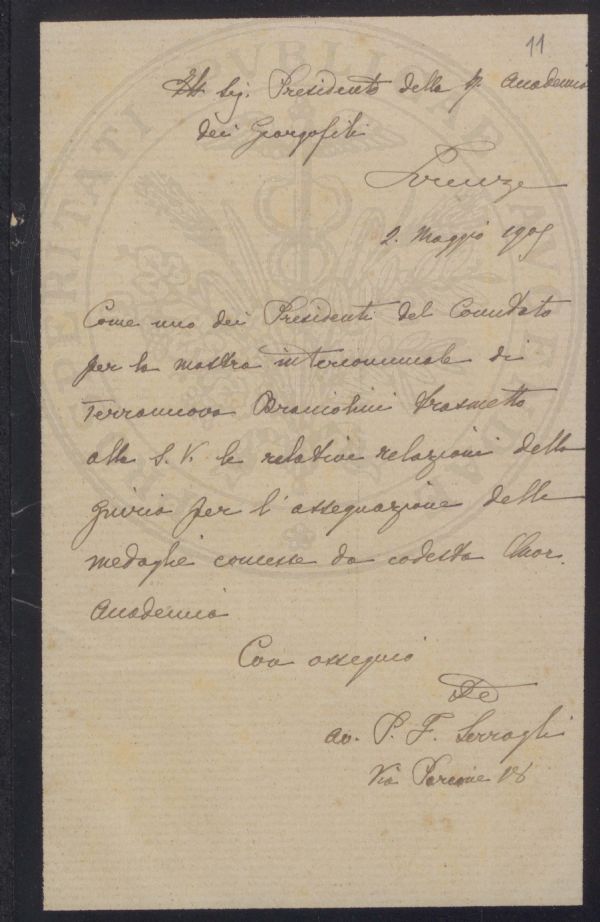 11
Ill Sig. Presidente della R. Accademia
dei Georgofili
Firenze
2. Maggio 1905
Come uno dei Presidenti del Comitato
per la mostra intercomunale di
Terranuova Bracciolini trasmetto
alla S. V. le relative relazioni della
giuria per l'assegnazione delle
medaglie concesse da codesta Onor.
Accademia
Con ossequio
av. P. F. Serragli
Via Porcione 18